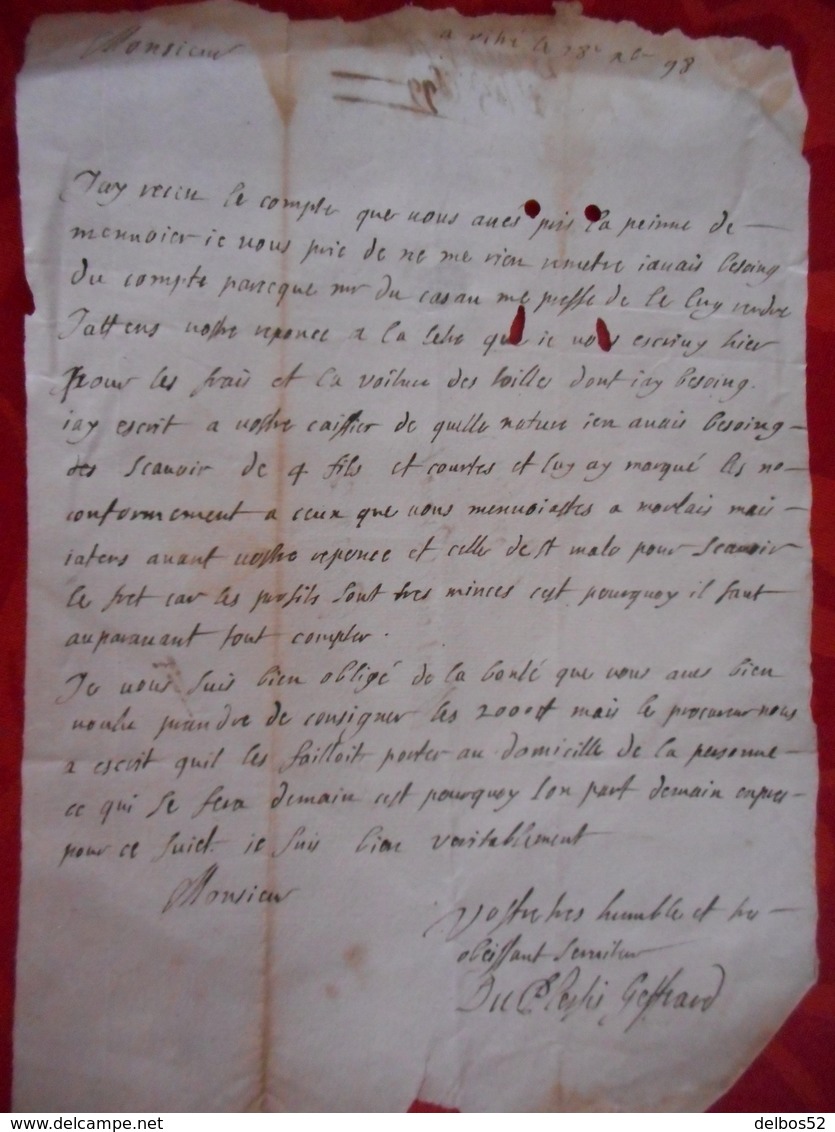 Monsieur
a vitré le 28e 9bre 98
Jay receu le compte que vous aués pris la peinne de
mennoier ie vous prie de ne me rien remetre iauais besoing
du compte parceque mr du casau me presse de le luy rendre
Jattens vostre reponce a la letre que ie vous escriuy hier
pour les frais et la voiture des toilles dont iay besoing.
iay escrit a vostre caissier de quelle nature ien auais besoing
des scauoir de 4 fils et courtes et luy ay marqué les no
conformement a ceux que vous mennoiastes a morlais mais
iatens auant vostre reponce et celle de st malo pour scauoir
le fret car les profits sont tres minces cest pourquoy il faut
auparauant tout compter.
Je vous suis bien obligé de la bonté que vous aues bien
voulu prandre de consigner les 2000tt mais le procureur nous
a escrit quil les failloit porter au domicille de la personne
ce qui se fera demain cest pourquoy lon part demain expres
pour ce suiet. ie suis bien veritablement
Monsieur
Vostre tres humble et tres
obeissant seruiteur
Du Plessis Geffrard
delbos52